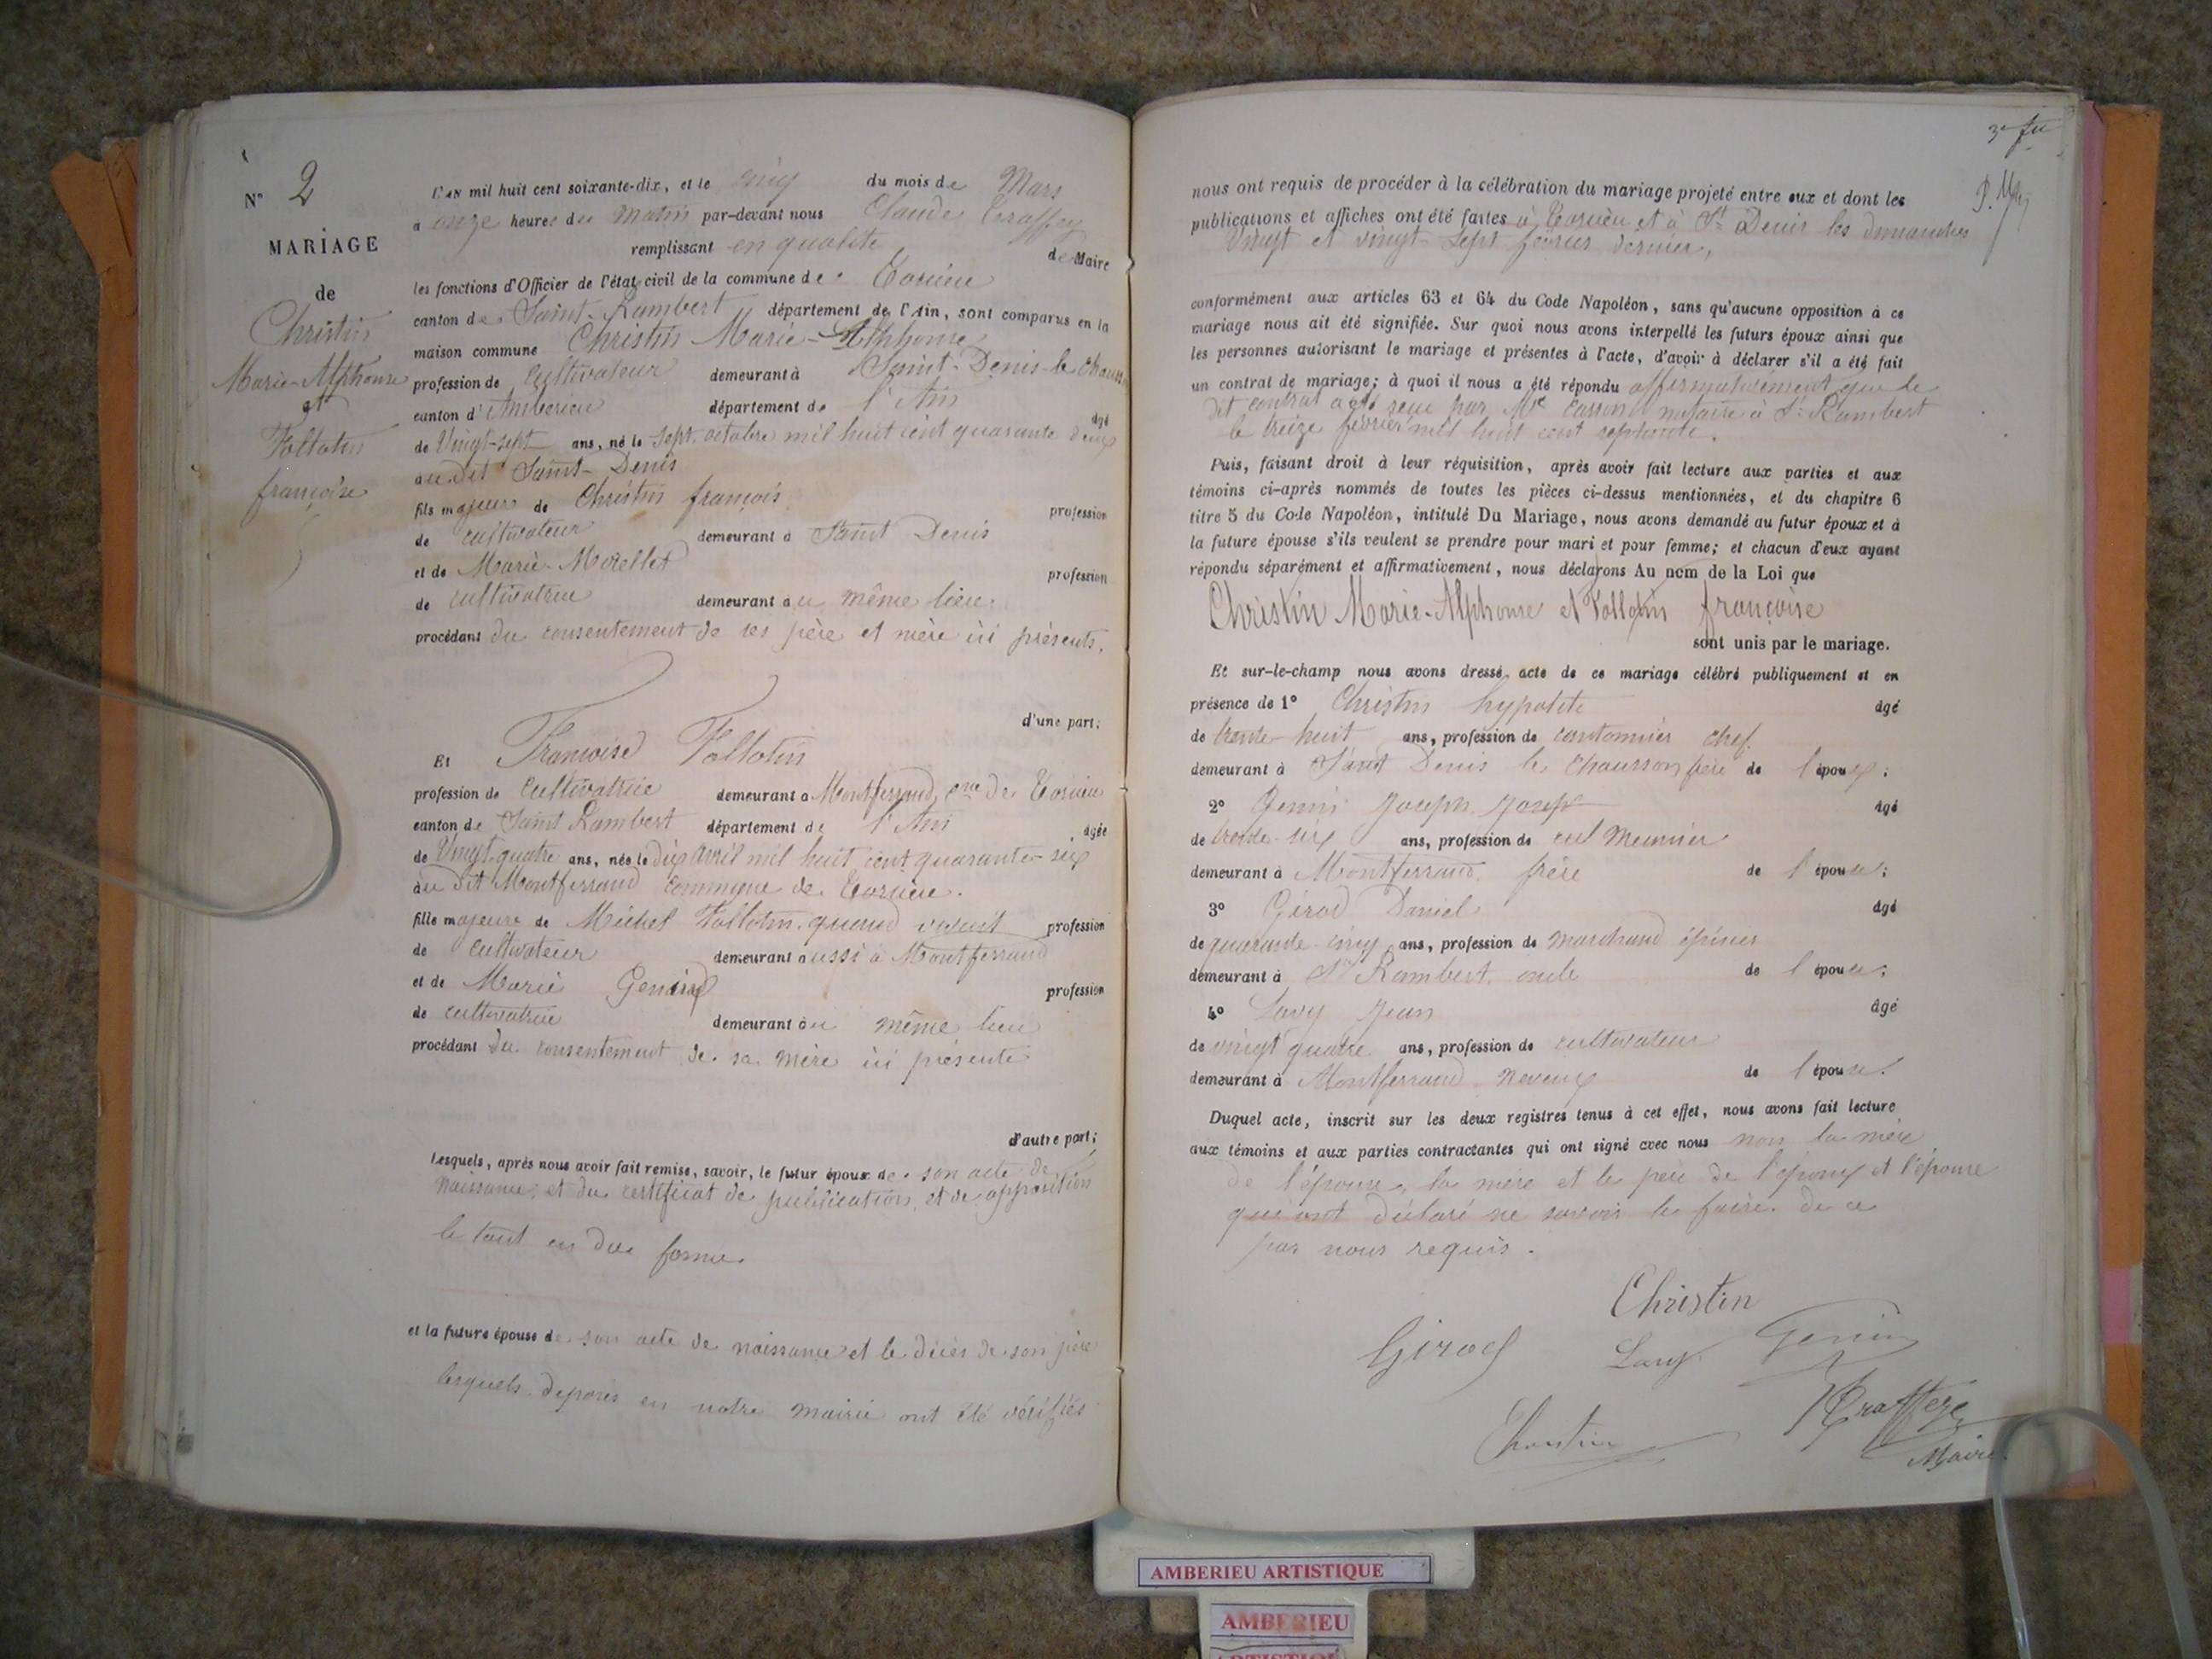 N° 2
MARIAGE
de
Christin
Marie-Alphonse
et
Falloton
françoise
L'AN mil huit cent soixante-dix, et le cinq du mois de Mars
à onze heures du matin par-devant nous Claude
remplissant en qualité de Maire
les fonctions d'Officier de l'état civil de la commune de Torcieu
canton de Saint-Rambert département de l'Ain, sont comparus en la
maison commune Christin Marie-Alphonse
profession de cultivateur demeurant à Saint-Denis-le-Chausson
canton d'Ambérieu département de l'Ain âgé
de Vingt-sept ans, né le sept octobre mil huit cent quarante deux
au dit Saint-Denis
fils majeur de Christin françois profession
de cultivateur demeurant à Saint Denis
et de Marie Morellet profession
de cultivatrice demeurant au même lieu
procédant du consentement de ses père et mère ici présents.
d'une part;
Et Françoise
profession de Cultivatrice demeurant à Montferrand, cne de Torcieu
canton de Saint Rambert département de l'Ain âgée
de Vingt quatre ans, née le dix avril mil huit cent quarante-six
au dit Montferrand commune de Torcieu.
fille majeure de Michel quand vivait profession
de cultivateur demeurant aussi à Montferrand
et de Marie profession
de cultivatrice demeurant au même lieu
procédant du consentement de sa mère ici présente
d'autre part;
Lesquels, après nous avoir fait remise, savoir, le futur époux de son acte de
naissance, et du certificat de publication, et de apposition
le tout en due forme.
et la future épouse de son acte de naissance et le décès de son père
lesquels déposés en notre mairie ont été vérifiés
3e
nous ont requis de procéder à la célébration du mariage projeté entre eux et dont les
publications et affiches ont été faites à Torcieu et à St Denis les dimanches
Vingt et vingt-sept février dernier,
conformément aux articles 63 et 64 du Code Napoléon, sans qu'aucune opposition à ce
mariage nous ait été signifiée. Sur quoi nous avons interpellé les futurs époux ainsi que
les personnes autorisant le mariage et présentes à l'acte, d'avoir à déclarer s'il a été fait
un contrat de mariage; à quoi il nous a été répondu affirmativement que le
dit contrat a été reçu par Me notaire à St Rambert
le treize février mil huit cent septante.
Puis, faisant droit à leur réquisition, après avoir fait lecture aux parties et aux
témoins ci-après nommés de toutes les pièces ci-dessus mentionnées, et du chapitre 6
titre 5 du Code Napoléon, intitulé Du Mariage, nous avons demandé au futur époux et à
la future épouse s'ils veulent se prendre pour mari et pour femme; et chacun d'eux ayant
répondu séparément et affirmativement, nous déclarons Au nom de la Loi que
Christin Marie-Alphonse et françoise
sont unis par le mariage.
Et sur-le-champ nous avons dressé acte de ce mariage célébré publiquement et en
présence de 1° Christin hypolite âgé
de trente-huit ans, profession de cantonnier chef
demeurant à Saint Denis le Chausson frère de l'époux;
2° Genin Joseph Joseph âgé
de trente-six ans, profession de meunier
demeurant à Montferrand frère de l'épouse;
3° Girod Daniel âgé
de quarante-cinq ans, profession de marchand épicier
demeurant à St Rambert oncle de l'épouse;
4° Lavy Jean âgé
de vingt quatre ans, profession de cultivateur
demeurant à Montferrand neveux de l'épouse.
Duquel acte, inscrit sur les deux registres tenus à cet effet, nous avons fait lecture
aux témoins et aux parties contractantes qui ont signé avec nous non la mère
de l'épouse, la mère et le père de l'époux et l'épouse
qui ont déclaré ne savoir le faire de ce
par nous requis.
Christin
Girod Lavy Genin
Christin
Maire
AMBERIEU ARTISTIQUE
AMBERIEU
ARTISTIQUE